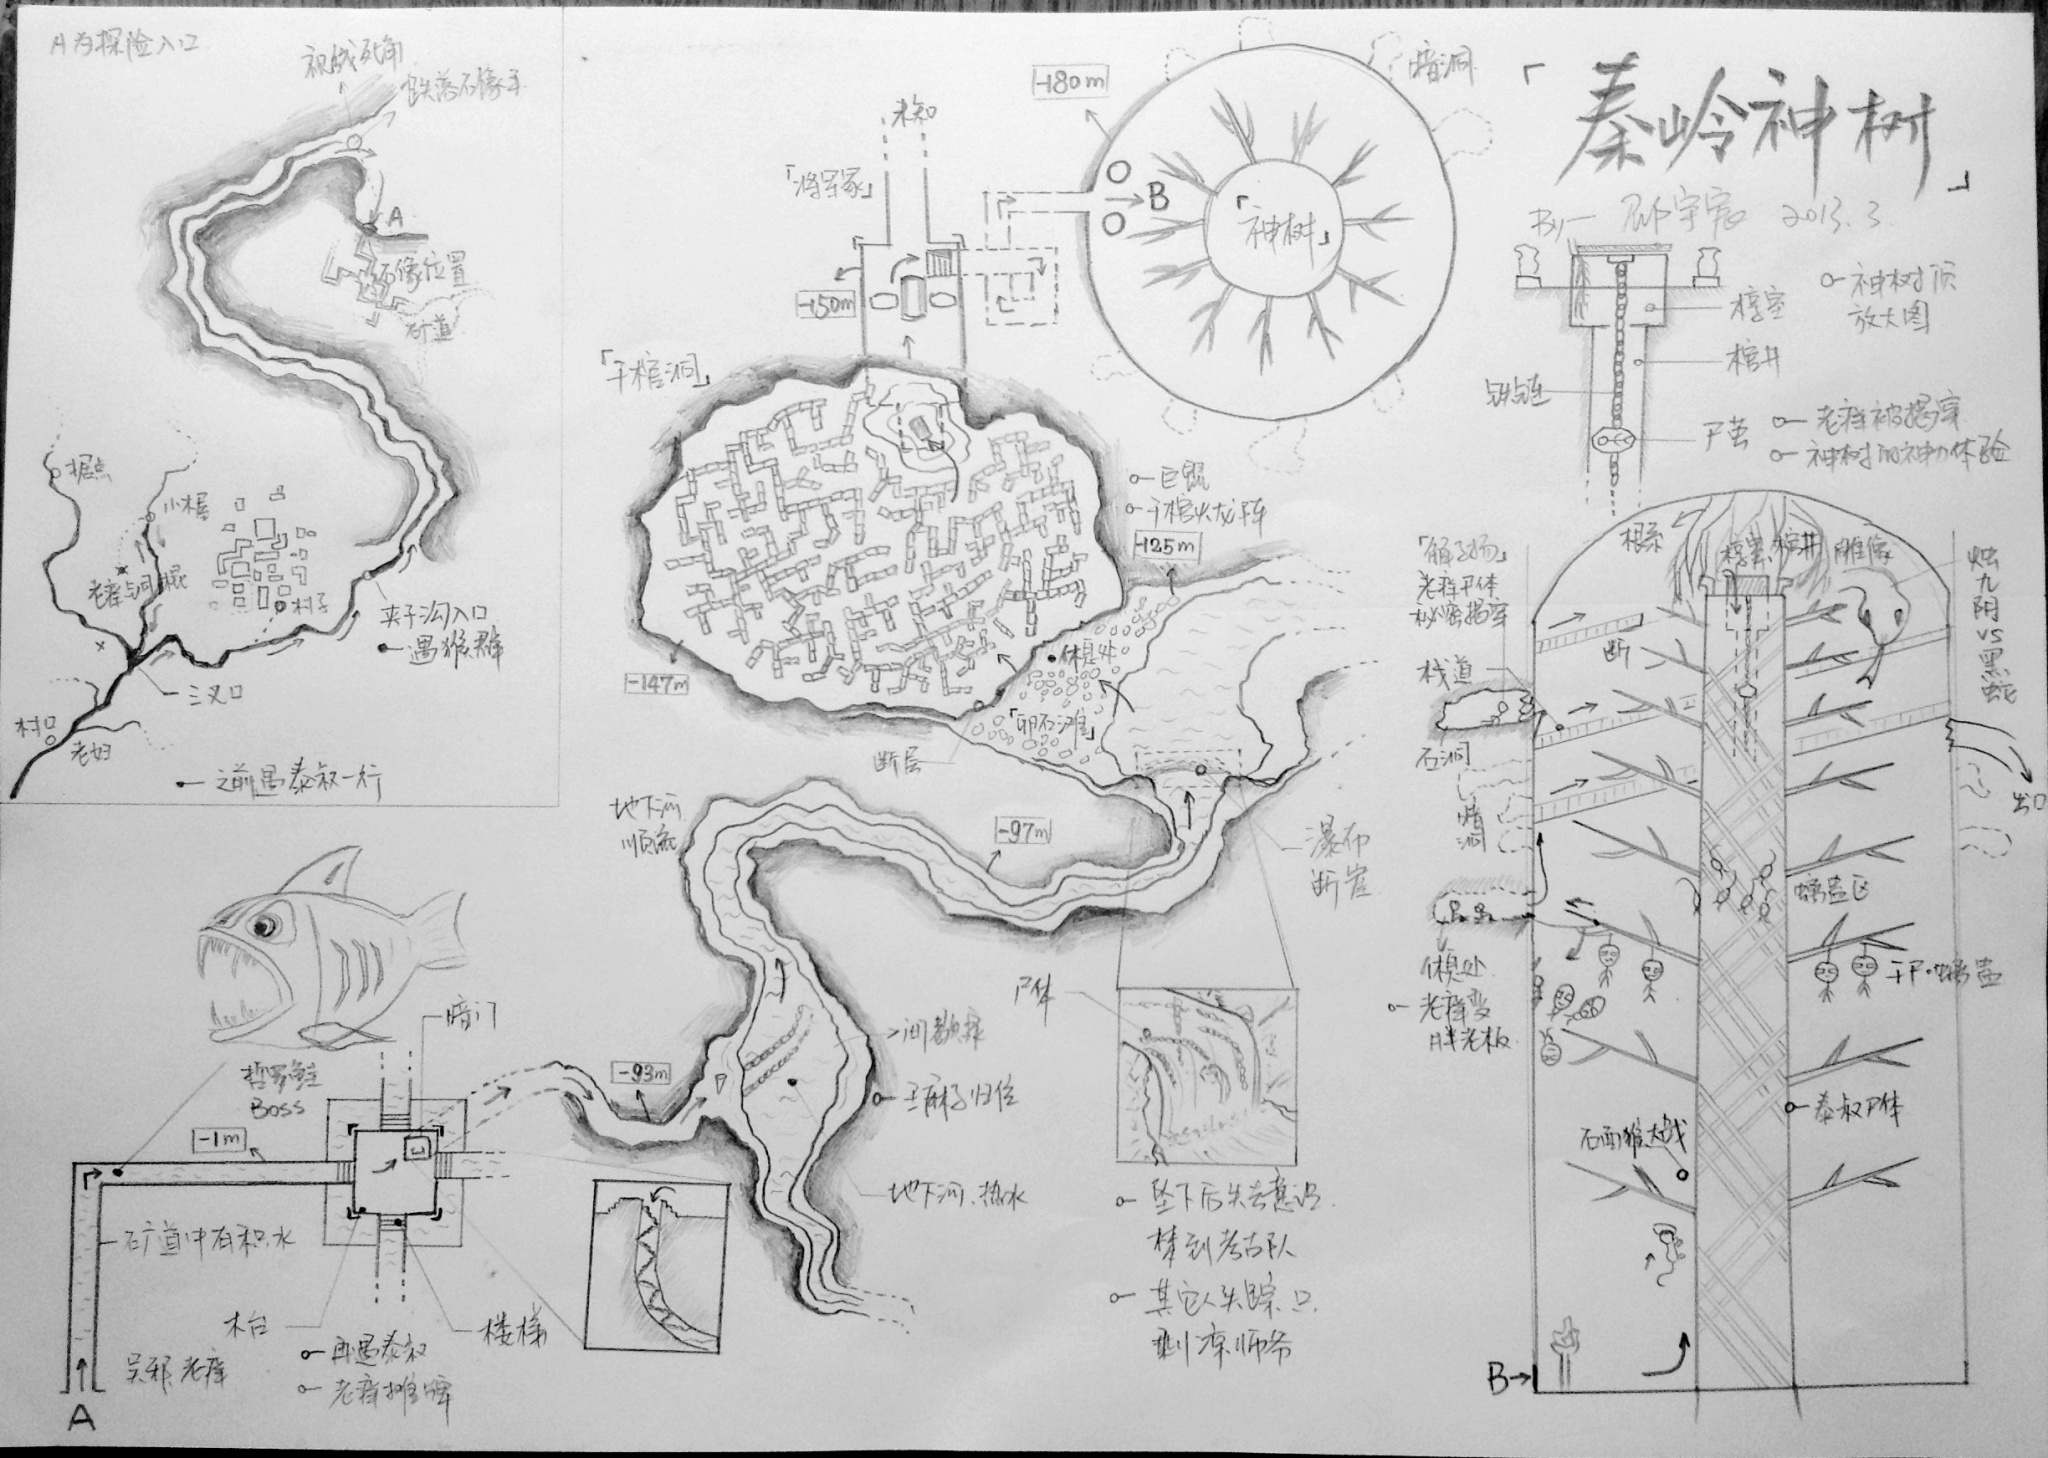 A为探险入口
视线死角
跌落石像手
A
石像位置
矿道
据点
小木屋
老痒与同
村子
夹子沟入口
遇猴群
三叉口
村口
老妇
之前遇泰叔一行
哲罗鲑
BOSS
暗门
-1m
矿道中有积水
木台
楼梯
吴邪、老痒
再遇泰叔
老痒摊牌
A
未知
「将军冢」
-150m
「千棺洞」
-147m
-180m
暗洞
B
「神树」
巨鲲
千棺火龙阵
-125m
休息处
「卵石滩」
断层
地下河
顺流
-97m
瀑布
断崖
-93m
尸体
王麻子归位
地下河、热水
坠下后失去意识
梦到考古队
其它人失踪只
剩凉师爷
「秦岭神树」
By
2013.3
神树顶
放大图
椁室
棺井
铁链
尸茧
老痒被揭穿
神树的神力体验
老痒尸体
秘密揭穿
根系
椁室
棺井
雕像
烛九阴VS黑蛇
断
栈道
石洞
暗洞
出口
螭蛊区
休息处
老痒变
胖老板
干尸·螭蛊
泰叔尸体
石面猴大战
B